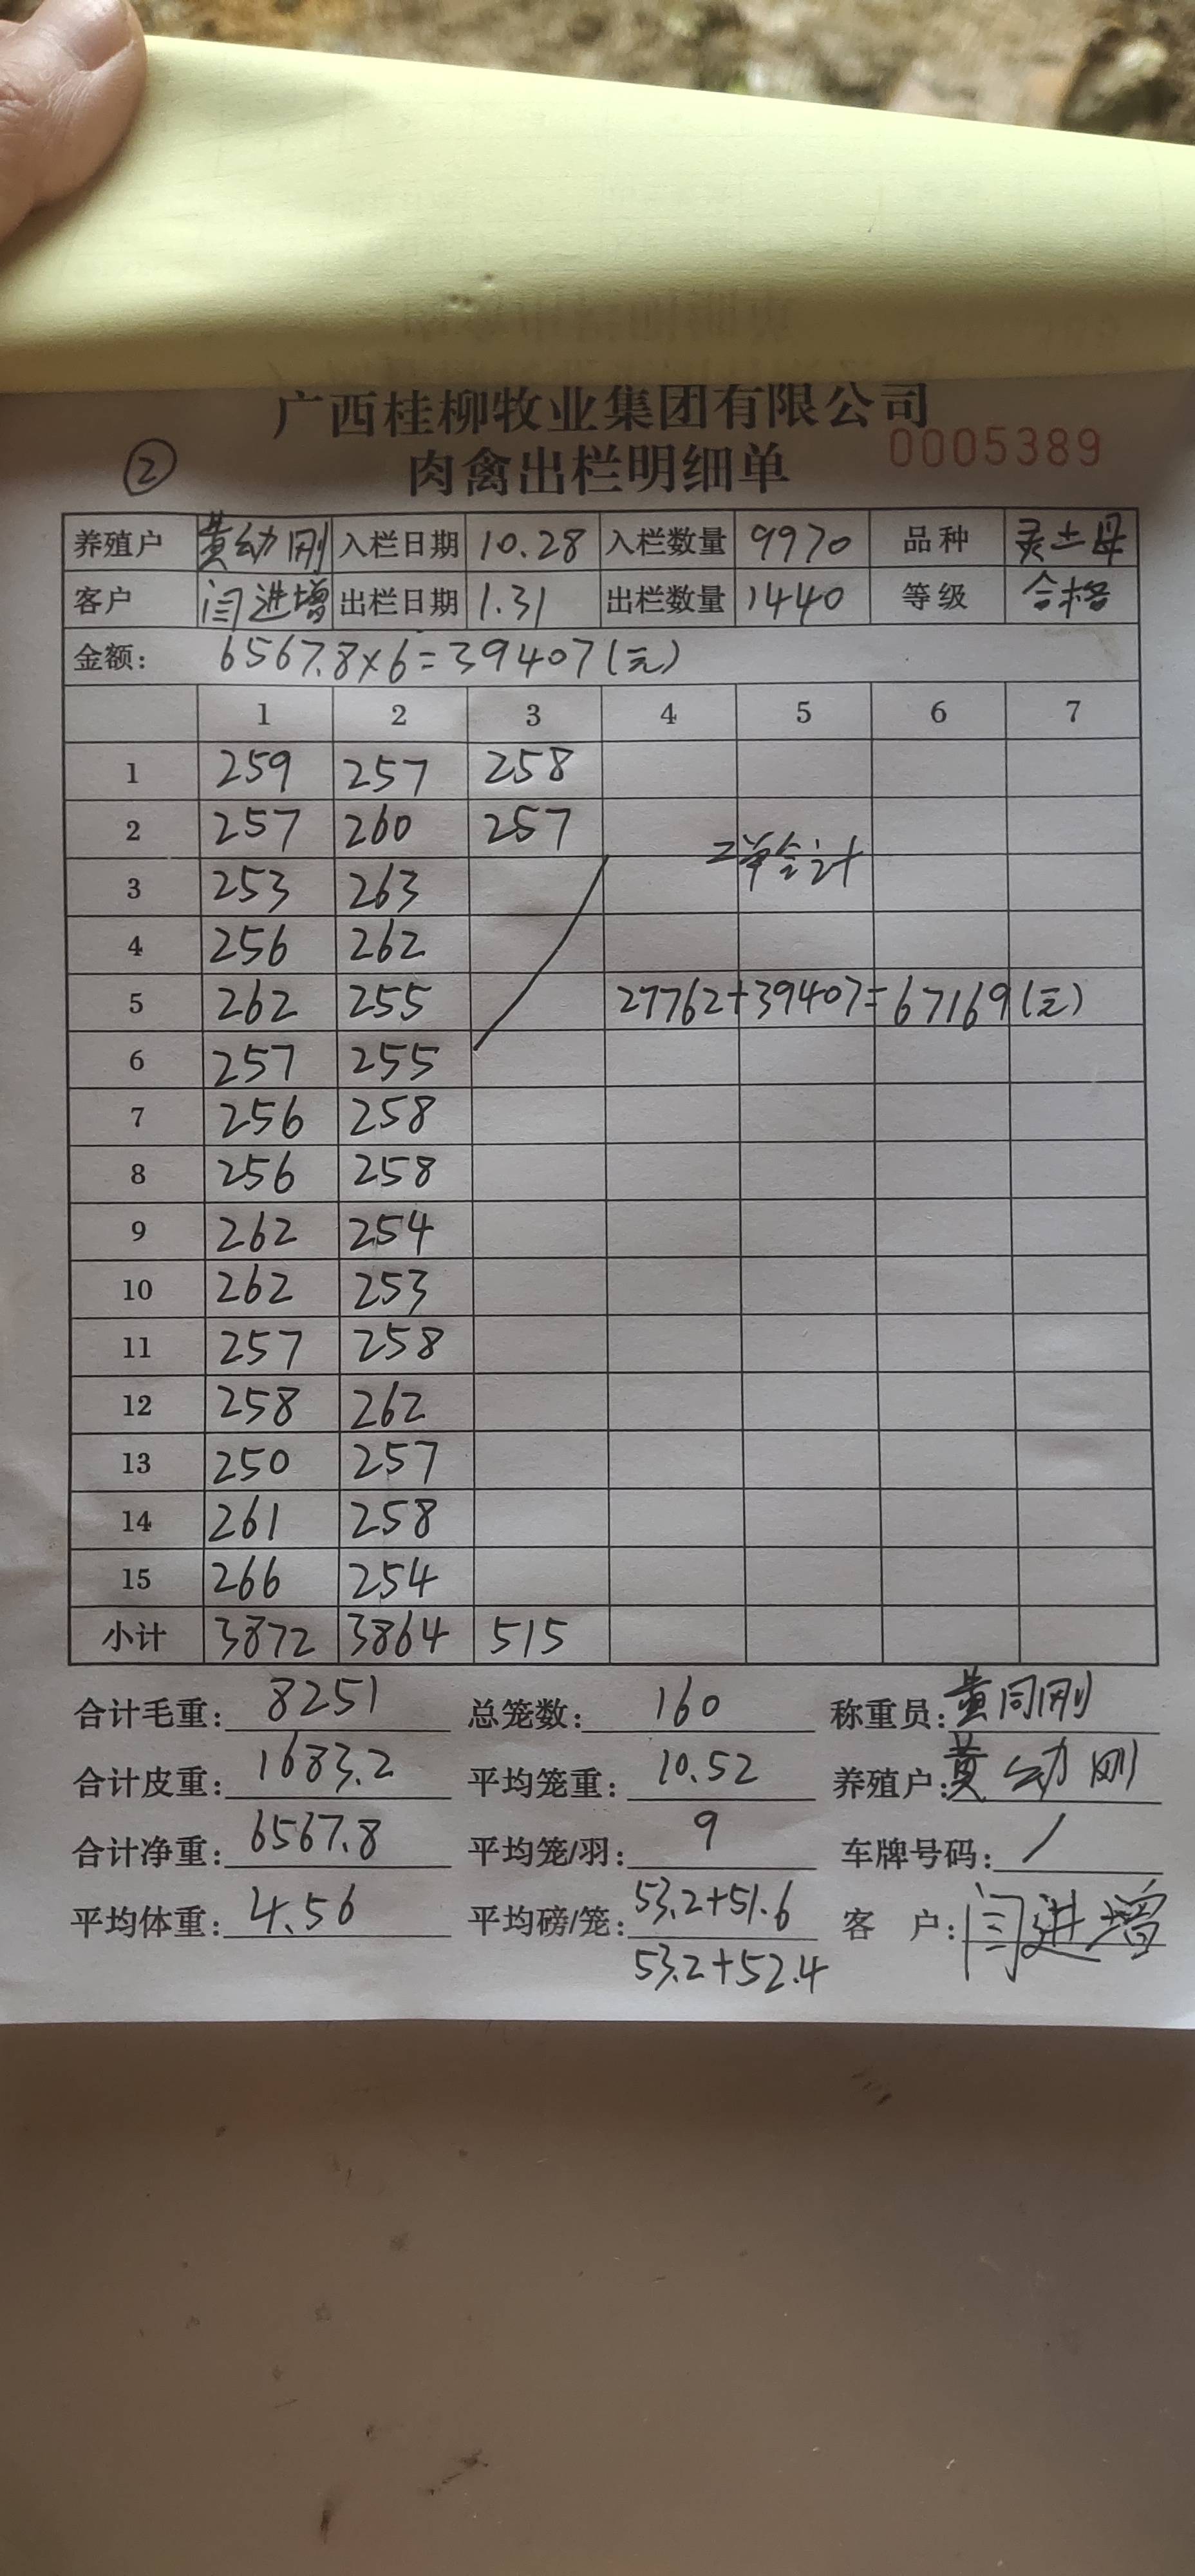 广西桂柳牧业集团有限公司
② 肉禽出栏明细单 0005389
养殖户 黄幼刚 入栏日期 10.28 入栏数量 9970 品种 灵土母
客户 闫进增 出栏日期 1.31 出栏数量 1440 等级 合格
金额: 6567.8×6=39407(元)
1 2 3 4 5 6 7
1 259 257 258
2 257 260 257
二单合计
3 253 263
4 256 262
5 262 255 27762+39407=67169(元)
6 257 255
7 256 258
8 256 258
9 262 254
10 262 253
11 257 258
12 258 262
13 250 257
14 261 258
15 266 254
小计 3872 3864 515
合计毛重: 8251 总笼数: 160 称重员: 黄同刚
合计皮重: 1683.2 平均笼重: 10.52 养殖户: 黄幼刚
合计净重: 6567.8 平均笼/羽: 9 车牌号码: /
平均体重: 4.56 平均磅/笼: 53.2+51.6 客 户: 闫进增
53.2+52.4